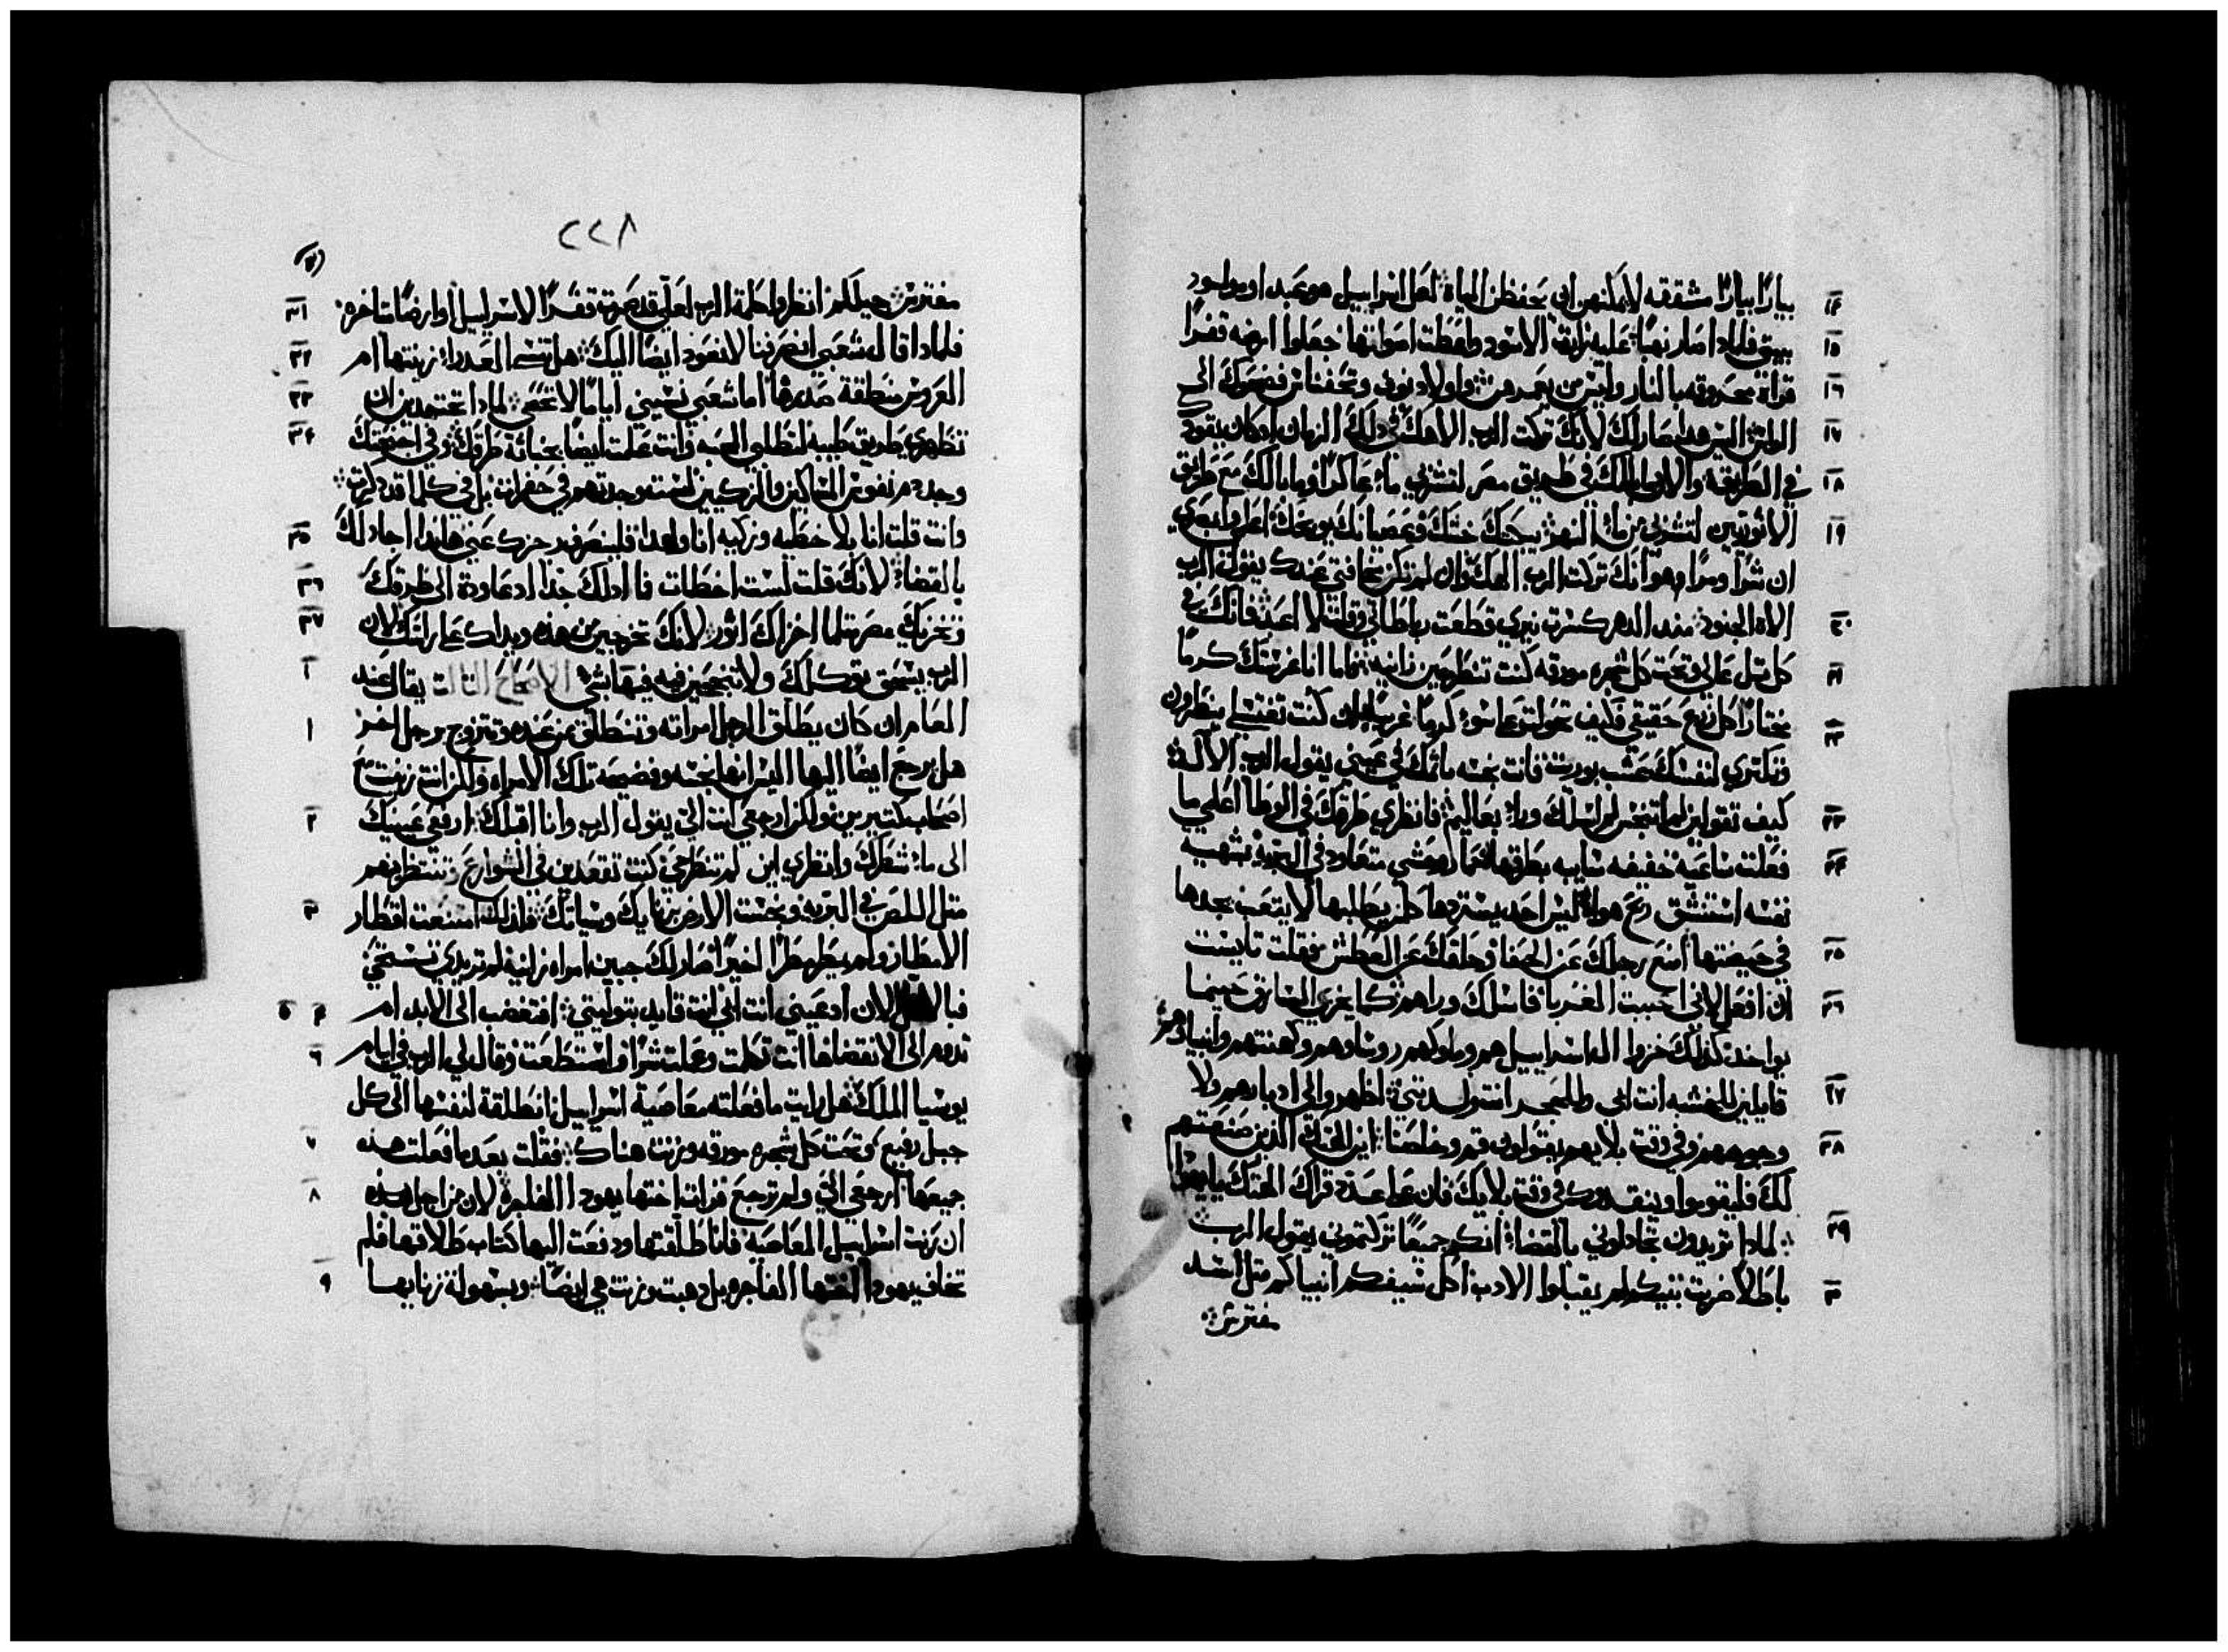 بيارًا بيارًا مشققه لايمكنهم ان يحفظن المياه لعل اسراييل هو عبد او مولود ١٤
بيتي فلماذا صار نهبًا عليه زارت الاسود واعطت اصواتها جعلوا ارضه قفرًا ١٥
قراه محروقه بالنار وليس من يعمرهن واولاد نوف وتحفناس فضحوك الى ١٦
الراس اليس هذا صار لك لانك تركت الرب الاهك في ذلك الزمان اذ كان يقودك ١٧
في الطريق والان ما بالك في طريق مصر لتشربي ماء عاكرًا وما بالك مع طريق ١٨
الاثوريين لتشربي من ماء النهر يبكتك خبثك وعصيانك يوبخك اعلمي وابصري ١٩
ان شرًا ومرًا هو انك تركت الرب الهك وان لم تكن مخافتي عندك يقول الرب
الاه الجنود منذ الدهر كسرت نيري قطعت رباطاتي وقلت لا اعبد فانك في ٢٠
كل تل عالي وتحت كل شجره مورقه كنت تنطجعين زانيه فاما انا غرستك كرمًا ٢١
مختارًا كل زرع حقيقي فكيف تحولتي عاسوء كرمًا غريبًا ان كنت تغتسلي بنطرون ٢٢
وتكتري لنفسك عشب بوريت فانت نجسه باثمك في عيني يقول الرب الاله
كيف تقولين لم اتنجس لم اسلك وراء بعاليم فانظري طرقك في الوطا اعلمي ما ٢٣
فعلت ساعيه خفيفه سايبه بطرقها حمار وحشي متعاود في البريه بشهيه ٢٤
نفسه استنشق ريح هواه ليس احد يستردها كل من يطلبها لا يتعب يجدها
في حيضتها امنع رجلك عن الحفا وحلقك عن العطش فقلت تايست ٢٥
لن افعل لاني احببت الغربا فاسلك وراهم كما يخزي السارق حينما ٢٦
يواخذ كذلك خزوا ال اسراييل هم وملوكهم روساوهم وكهنتهم وانبياوهم
قايلين للخشبه انت ابي وللحجر انت ولدتني اظهروا الي ادبارهم ولا ٢٧
وجوههم وفي وقت بلايهم يقولون قم وخلصنا اين الهتك الذين صنعتهم ٢٨
لك فليقوموا وينقذوك في وقت بلايك فان على عدة قراك الهتك يا يهودا
لماذا تريدون تجادلوني بالقضاء انكم جميعًا تركتموني يقول الرب ٢٩
باطلًا ضربت بنيكم لم يقبلوا الادب اكل سيفكم انبياكم مثل اسد ٣٠
مفترس
٢٢٨
مفترس جيلكم انظروا كلمة الرب لعلي قد صرت قفرًا لاسراييل او ارضًا متاخره ٣١
فلماذا قال شعبي انصرفنا لا نعود ايضًا اليك هل تنسا العدراء زينتها ام ٣٢
العروس منطقة صدرها اما شعبي نسيني ايامًا لا تحصى لماذا تجتهدين ان ٣٣
تظهري طريقك طيبه لتطلبي المحبه وانت علمت ايضًا بخباثة طرقك وفي اجنحتك ٣٤
وجد دم نفوس المساكين والزكيين لست وجدتهم في حفرات بل في كلما قد ذكرت
وانت قلت انا بلا خطيه وزكيه انا ولهذا فلينصرف رجزك عني هانذا اجادلك ٣٥
بالقضاء لانك قلت لست اخطات فما ادلك جدًا اذ عاودة الى طرقك ٣٦
وتخزيك مصر مثلما اخزاك اثور لانك تخرجين من هذه ويداك على راسك لان ٣٧
الرب يسحق توكلك ولا تنجحين فيه فيها شي الاصحاح الثالث يقال عند ٣
العامر ان كان يطلق الرجل امراته وتنطلق من عنده وتتزوج برجل اخر ١
هل يرجع ايضًا اليها اليس انها نجسه وفضيحه تلك الامراه ولكن انت زنيت مع
اصحاب كتيرين ولكن ارجعي انت الي يقول الرب وانا اقبلك ارفعي عينيك ٢
الى ما شعرك وانظري اين لم تنطرحي كنت تقعدين في الشوارع وتنتظريهم
مثل اللص في البريه ونجست الارض بزناياك وسياتك فلذلك امتنعت اقطار ٣
الامطار ولم يكن مطرًا اخيرًا صار لك جبين امراه زانيه لم تريدي تستحي
فبالان الان ادعيني انت ابي انت قايد بتوليتي افتغضب الى الابد ام ٤ ٥
تدوم الى الانقضا ها انت تكلمت وعملت شرًا واستطعت وقال لي الرب في ايام ٦
يوسيا الملك هل رايت ما فعلته معاصية اسراييل انطلقة لنفسها الى كل
جبل رفيع وتحت كل شجره مورقه وزنت هناك فقلت بعد ما فعلت هذه ٧
جميعها ارجعي الي ولم ترجع فرات اختها يهودا الفاجره لان من اجل هذه ٨
ان زنت اسراييل المعاصيه فانا طلقتها ودفعت اليها كتاب طلاقها فلم
تخاف يهودا اختها الفاجره بل ذهبت وزنت هي ايضًا وبسهولة زنايها ٩